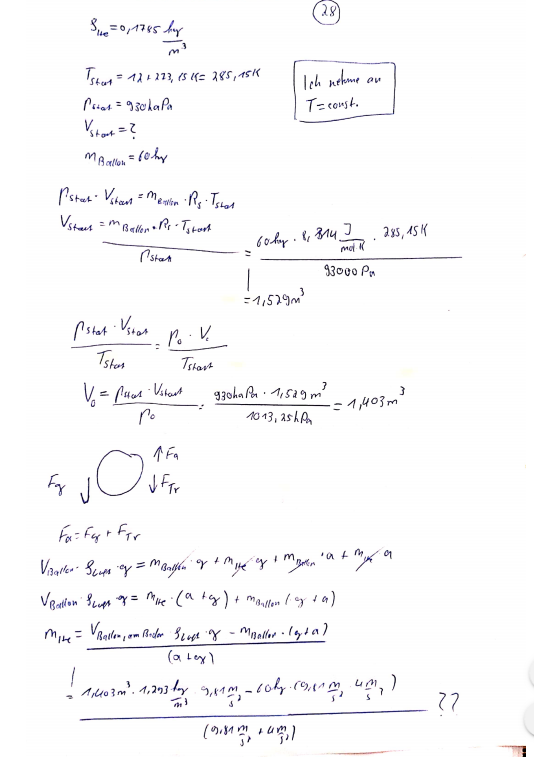 28
ρHe = 0,1785 kg/m³
TStart = 12 + 273,15 K = 285,15K
Ich nehme an
T = const.
pStart = 930 haPa
VStart = ?
mBallon = 60 kg
pStart · VStart = mBallon · Rs · TStart
VStart = mBallon · Rs · TStart / pStart = 60kg · 8,314 J/mol K · 285,15K / 93000 Pa
= 1,529 m³
pStart · VStart / TStart = p0 · V0 / TStart
V0 = pStart · VStart / p0 = 930haPa · 1,529 m³ / 1013,25hPa = 1,403 m³
↑ Fa
Fg ↓ ↓ FTr
Fa = Fg + FTr
VBallon · ρLuft · g = mBallon · g + mHe · g + mBallon · a + mHe · a
VBallon · ρLuft · g = mHe · (a + g) + mBallon (g + a)
mHe = VBallon, am Boden ρLuft · g − mBallon · (g + a) / (a + g)
= 1,403m³ · 1,293 kg/m³ 9,81 m/s² − 60kg · (9,81 m/s² 4 m/s²) / (9,81 m/s² + 4 m/s²) ??